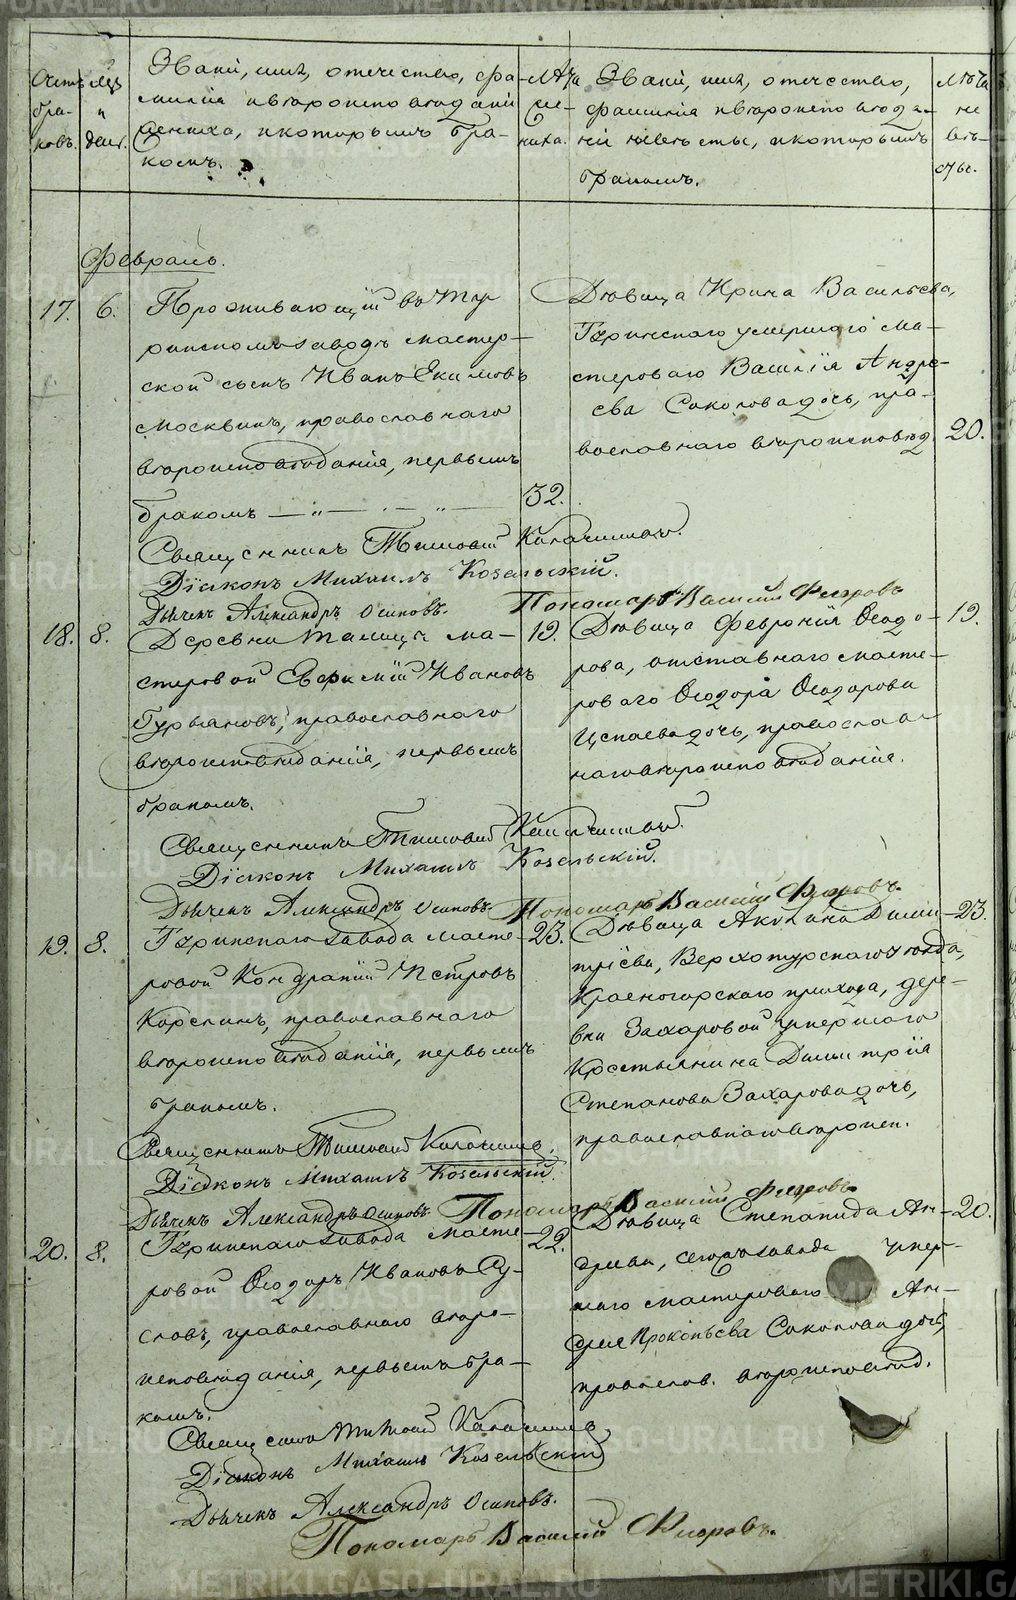 Счетъ бра-ковъ.
Мцъ и день.
Званіе, имя, отечество, фа-
милія и вѣроисповѣданіе
жениха, и которымъ бра-
комъ.
Лѣта же-ниха.
Званіе, имя, отечество,
фамилія и вѣроисповѣда-
ніе невѣсты, и которымъ
бракомъ.
Лѣта не-вѣ-сты.
Февраль.
17. 6.
Проживающій въ Тур
ринскомъ заводѣ мастер-
ской сынъ Иванъ Екимовъ
Москвинъ, православнаго
вѣроисповѣданія, первымъ
бракомъ
32.
Дѣвица Ирина Васильева,
Туринскаго умершаго ма-
стероваго Василія Андре-
ева Соколова дочь, пра-
вославнаго вѣроисповѣд.
20.
Священникъ Тимофей Калачниковъ.
Діаконъ Михаилъ Козельскій.
Дьячекъ Александръ Осиповъ. Пономарь Василій Флоровъ
18. 8.
Деревни Талицы ма-
стеровой Евфимій Ивановъ
Гурьяновъ, православнаго
вѣроисповѣданія, первымъ
бракомъ.
19.
Дѣвица Февронія Ѳеодо-
рова, отставнаго масте-
роваго Ѳеодора Ѳеодорова
дочь, православ
наго вѣроисповѣданія.
19.
Священникъ Тимофей Калачниковъ.
Діаконъ Михаилъ Козельскій.
Дьячекъ Александръ Осиповъ. Пономарь Василій Флоровъ.
19. 8.
Туринскаго завода масте-
ровой Кондратій Петровъ
Корелинъ, православнаго
вѣроисповѣданія, первымъ
бракомъ.
23.
Дѣвица Акилина Дими-
тріева, Верхотурскаго уѣзда,
Красногорскаго прихода, дере-
вни Захаровой умершаго
Крестьянина Димитрія
Степанова Захарова дочь,
православнаго вѣроисп.
23.
Священникъ Тимофей Калачниковъ.
Діаконъ Михаилъ Козельскій.
Дьячекъ Александръ Осиповъ. Пономарь Василій Флоровъ
20. 8.
Туринскаго завода масте-
ровой Ѳеодоръ Ивановъ Су-
словъ, православнаго вѣро-
исповѣданія, первымъ бра-
комъ.
22.
Дѣвица Степанида Ан-
дреева, сего завода умер-
шаго мастероваго Ан-
дрея Прокопьева Соколова дочь,
православ. вѣроисповѣд.
20.
Тимофей
Діаконъ Михаилъ Козельскій
Дьячекъ Александръ Осиповъ.
Пономарь Василій Флоровъ.
METRIKI.GASO-URAL.RU